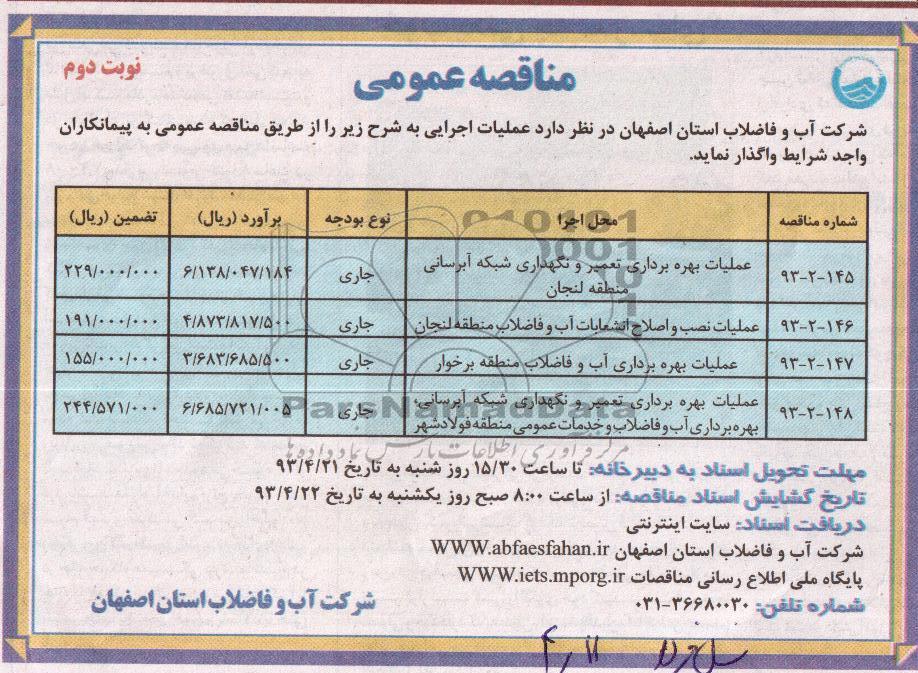 مناقصه عمومی
نوبت دوم
شرکت آب و فاضلاب استان اصفهان در نظر دارد عملیات اجرایی به شرح زیر را از طریق مناقصه عمومی به پیمانکاران
واجد شرایط واگذار نماید.
شماره مناقصه محل اجرا نوع بودجه برآورد (ریال) تضمین (ریال)
۹۳-۲-۱۴۵ عملیات بهره برداری تعمیر و نگهداری شبکه آبرسانی جاری ۶/۱۳۸/۰۴۷/۱۸۴ ۲۲۹/۰۰۰/۰۰۰
منطقه لنجان
۹۳-۲-۱۴۶ عملیات نصب و اصلاح انشعابات آب و فاضلاب منطقه لنجان جاری ۴/۸۷۳/۸۱۷/۵۰۰ ۱۹۱/۰۰۰/۰۰۰
۹۳-۲-۱۴۷ عملیات بهره برداری آب و فاضلاب منطقه برخوار جاری ۳/۶۸۳/۶۸۵/۵۰۰ ۱۵۵/۰۰۰/۰۰۰
۹۳-۲-۱۴۸ عملیات بهره برداری تعمیر و نگهداری شبکه آبرسانی، جاری ۶/۶۸۵/۷۲۱/۰۰۵ ۲۴۴/۵۷۱/۰۰۰
بهره برداری آب و فاضلاب و خدمات عمومی منطقه فولادشهر
ParsNamadData
مرکز فرآوری اطلاعات پارس نماد داده ها
مهلت تحویل اسناد به دبیرخانه: تا ساعت ۱۵/۳۰ روز شنبه به تاریخ ۹۳/۴/۲۱
تاریخ گشایش اسناد مناقصه: از ساعت ۸:۰۰ صبح روز یکشنبه به تاریخ ۹۳/۴/۲۲
دریافت اسناد: سایت اینترنتی
شرکت آب و فاضلاب استان اصفهان WWW.abfaesfahan.ir
پایگاه ملی اطلاع رسانی مناقصات WWW.iets.mporg.ir
شماره تلفن: ۰۳۱-۳۶۶۸۰۰۳۰
شرکت آب و فاضلاب استان اصفهان